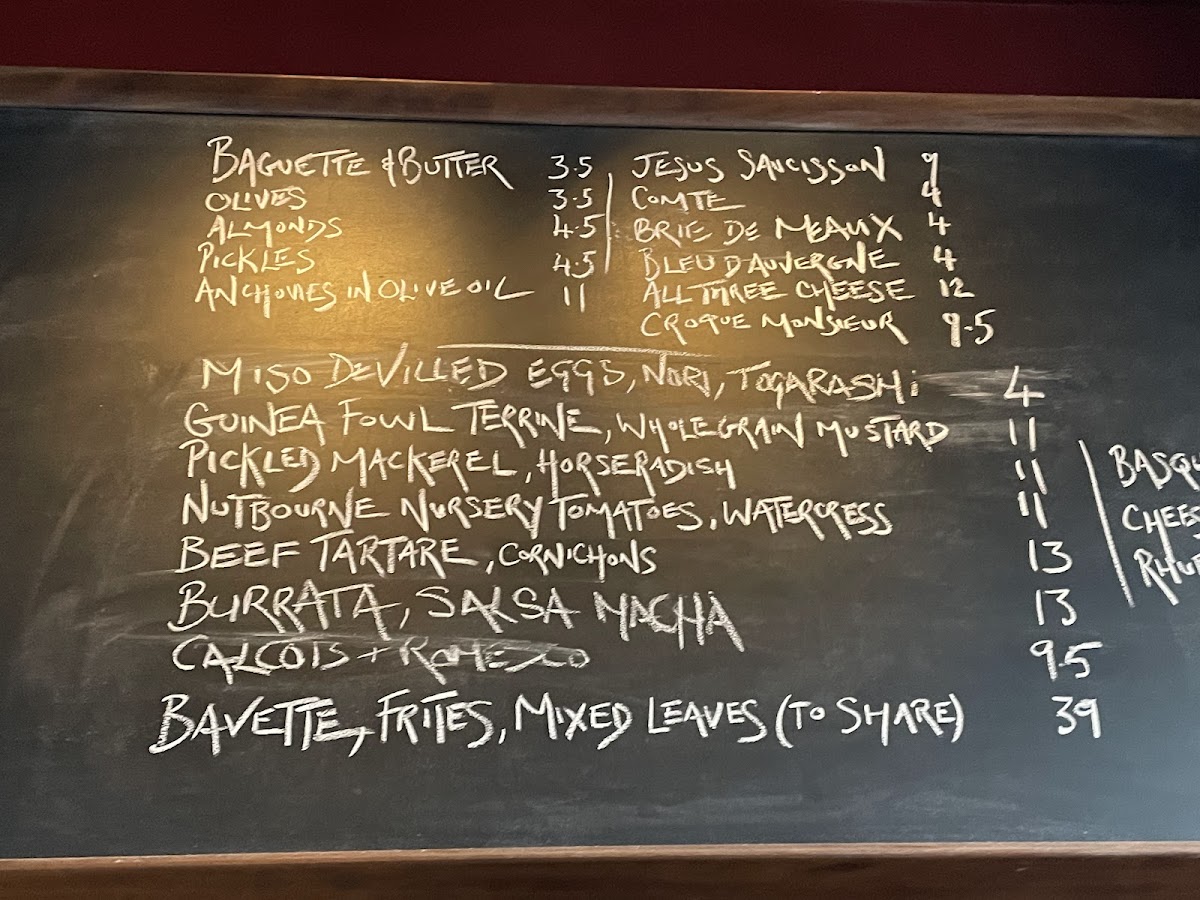 BAGUETTE & BUTTER 3.5
OLIVES 3.5
ALMONDS 4.5
PICKLES 4.5
ANCHOVIES IN OLIVE OIL 11
JESUS SAUCISSON 9
COMTE 4
BRIE DE MEAUX 4
BLEU D'AUVERGNE 4
ALL THREE CHEESE 12
CROQUE MONSIEUR 9.5
MISO DEVILLED EGGS, NORI, TOGARASHI 4
GUINEA FOWL TERRINE, WHOLEGRAIN MUSTARD 11
PICKLED MACKEREL, HORSERADISH 11
NUTBOURNE NURSERY TOMATOES, WATERCRESS 11
BEEF TARTARE, CORNICHONS 13
BURRATA, SALSA MACHA 13
CALCOTS + 9.5
BAVETTE, FRITES, MIXED LEAVES (TO SHARE) 39